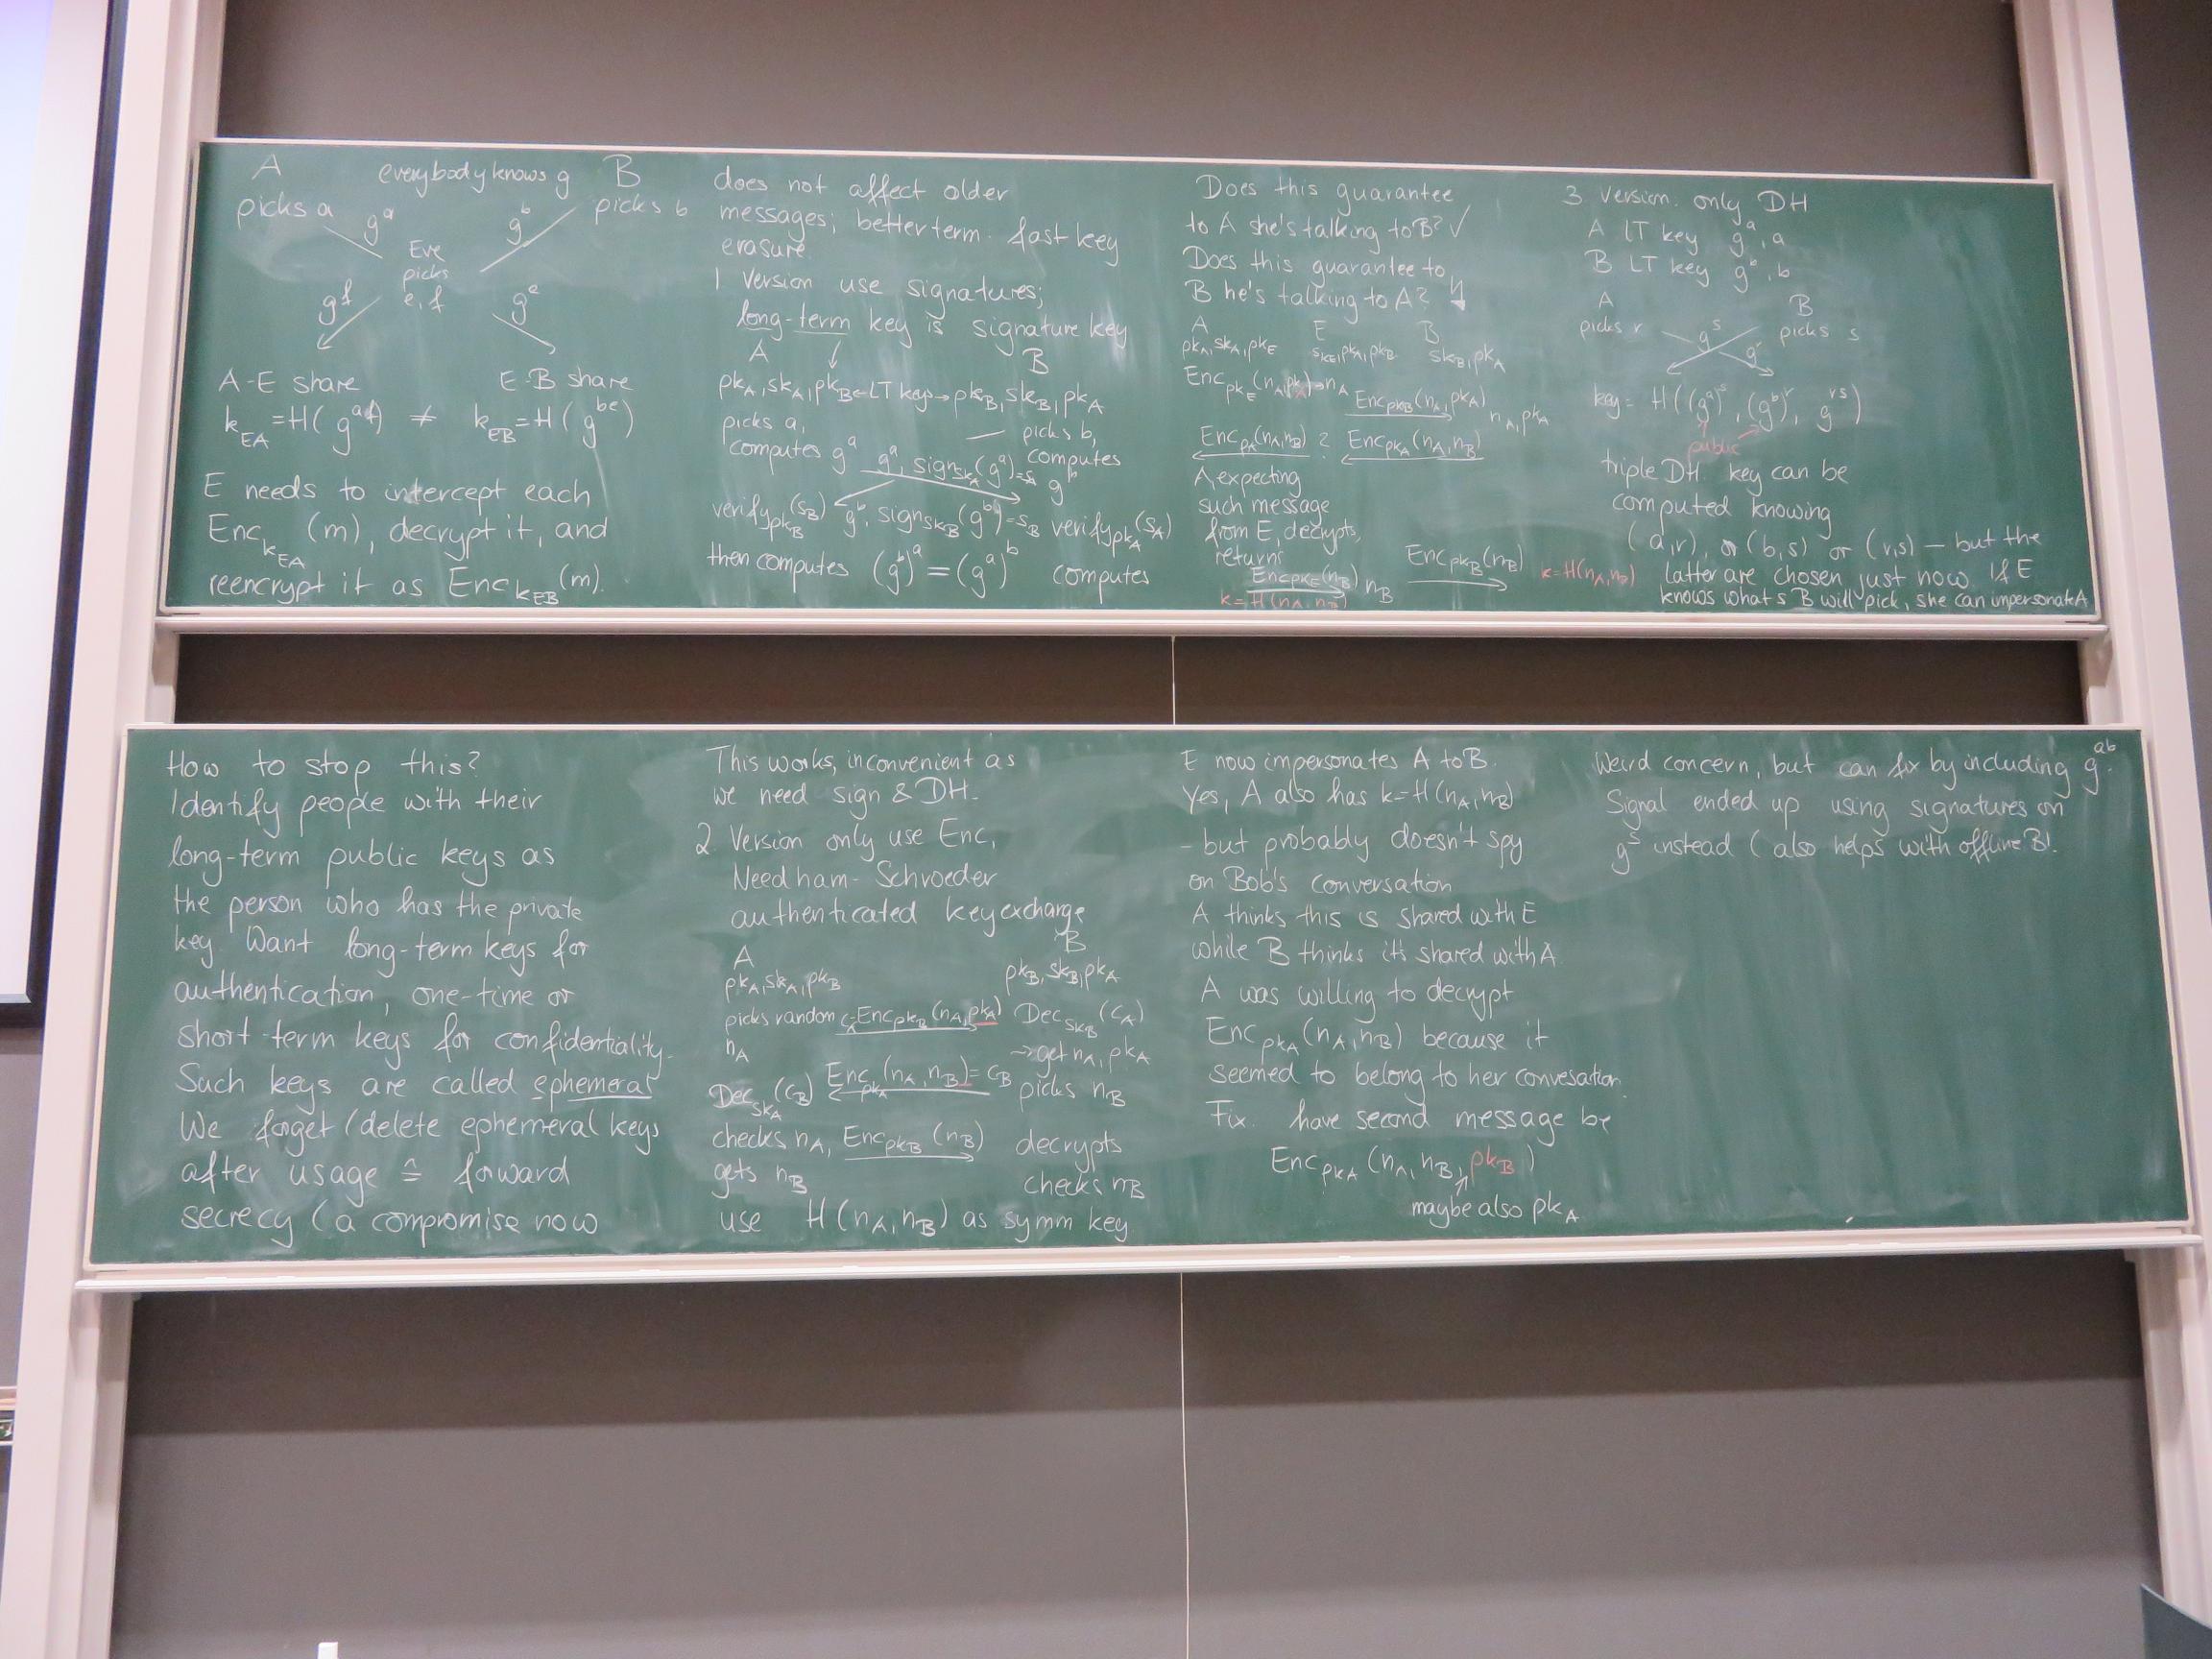 A everybody knows g B
picks a g^a g^b picks b
Eve
picks
e, f
g^f g^e
A-E share E-B share
k_EA = H(g^af) ≠ k_EB = H(g^be)
E needs to intercept each
Enc_k_EA (m), decrypt it, and
reencrypt it as Enc_k_EB (m).
How to stop this?
Identify people with their
long-term public keys as
the person who has the private
key. Want long-term keys for
authentication, one-time or
short-term keys for confidentiality.
Such keys are called ephemeral
We forget/delete ephemeral keys
after usage ≙ forward
secrecy (a compromise now
does not affect older
messages; better term: fast key
erasure.
1 Version use signatures;
long-term key is signature key
A B
pk_A, sk_A, pk_B ← LT key → pk_B, sk_B, pk_A
picks a, picks b,
computes g^a g^a, sign_sk_A(g^a)=s_A computes
g^b
verify_pk_B(s_B) g^b, sign_sk_B(g^b)=s_B verify_pk_A(s_A)
then computes (g^b)^a = (g^a)^b computes
This works, inconvenient as
we need sign & DH.
2 Version only use Enc,
Needham-Schroeder
authenticated key exchange
A B
pk_A, sk_A, pk_B pk_B, sk_B, pk_A
picks random c_A=Enc_pk_B(n_A, pk_A) Dec_sk_B(c_A)
n_A → get n_A, pk_A
Dec_sk_A(c_B) Enc_pk_A(n_A, n_B) = c_B picks n_B
checks n_A, Enc_pk_B(n_B) decrypts
gets n_B checks n_B
use H(n_A, n_B) as symm key
Does this guarantee
to A she's talking to B? ✓
Does this guarantee to
B he's talking to A? ↯
A E B
pk_A, sk_A, pk_E sk_E, pk_A, pk_B sk_B, pk_A
Enc_pk_E(n_A, pk_A) → n_A
Enc_pk_B(n_A, pk_A) n_A, pk_A
Enc_pk_A(n_A, n_B) ? Enc_pk_A(n_A, n_B)
A, expecting
such message
from E, decrypts,
returns
Enc_pk_E(n_B) n_B Enc_pk_B(n_B) k=H(n_A, n_B)
k=H(n_A, n_B)
E now impersonates A to B.
Yes, A also has k=H(n_A, n_B)
- but probably doesn't spy
on Bob's conversation
A thinks this is shared with E
while B thinks it's shared with A
A was willing to decrypt
Enc_pk_A(n_A, n_B) because it
seemed to belong to her convesation.
Fix: have second message be
Enc_pk_A(n_A, n_B, pk_B)
maybe also pk_A
3 version: only DH
A LT key g^a, a
B LT key g^b, b
A B
picks r g^s picks s
g^r
key = H((g^a)^s, (g^b)^r, g^rs)
public
triple DH key can be
computed knowing
(a,r), or (b,s) or (r,s) — but the
latter are chosen just now. If E
knows what s B will pick, she can impersonate A
Weird concern, but can fix by including g^ab.
Signal ended up using signatures on
g^s instead (also helps with offline B!